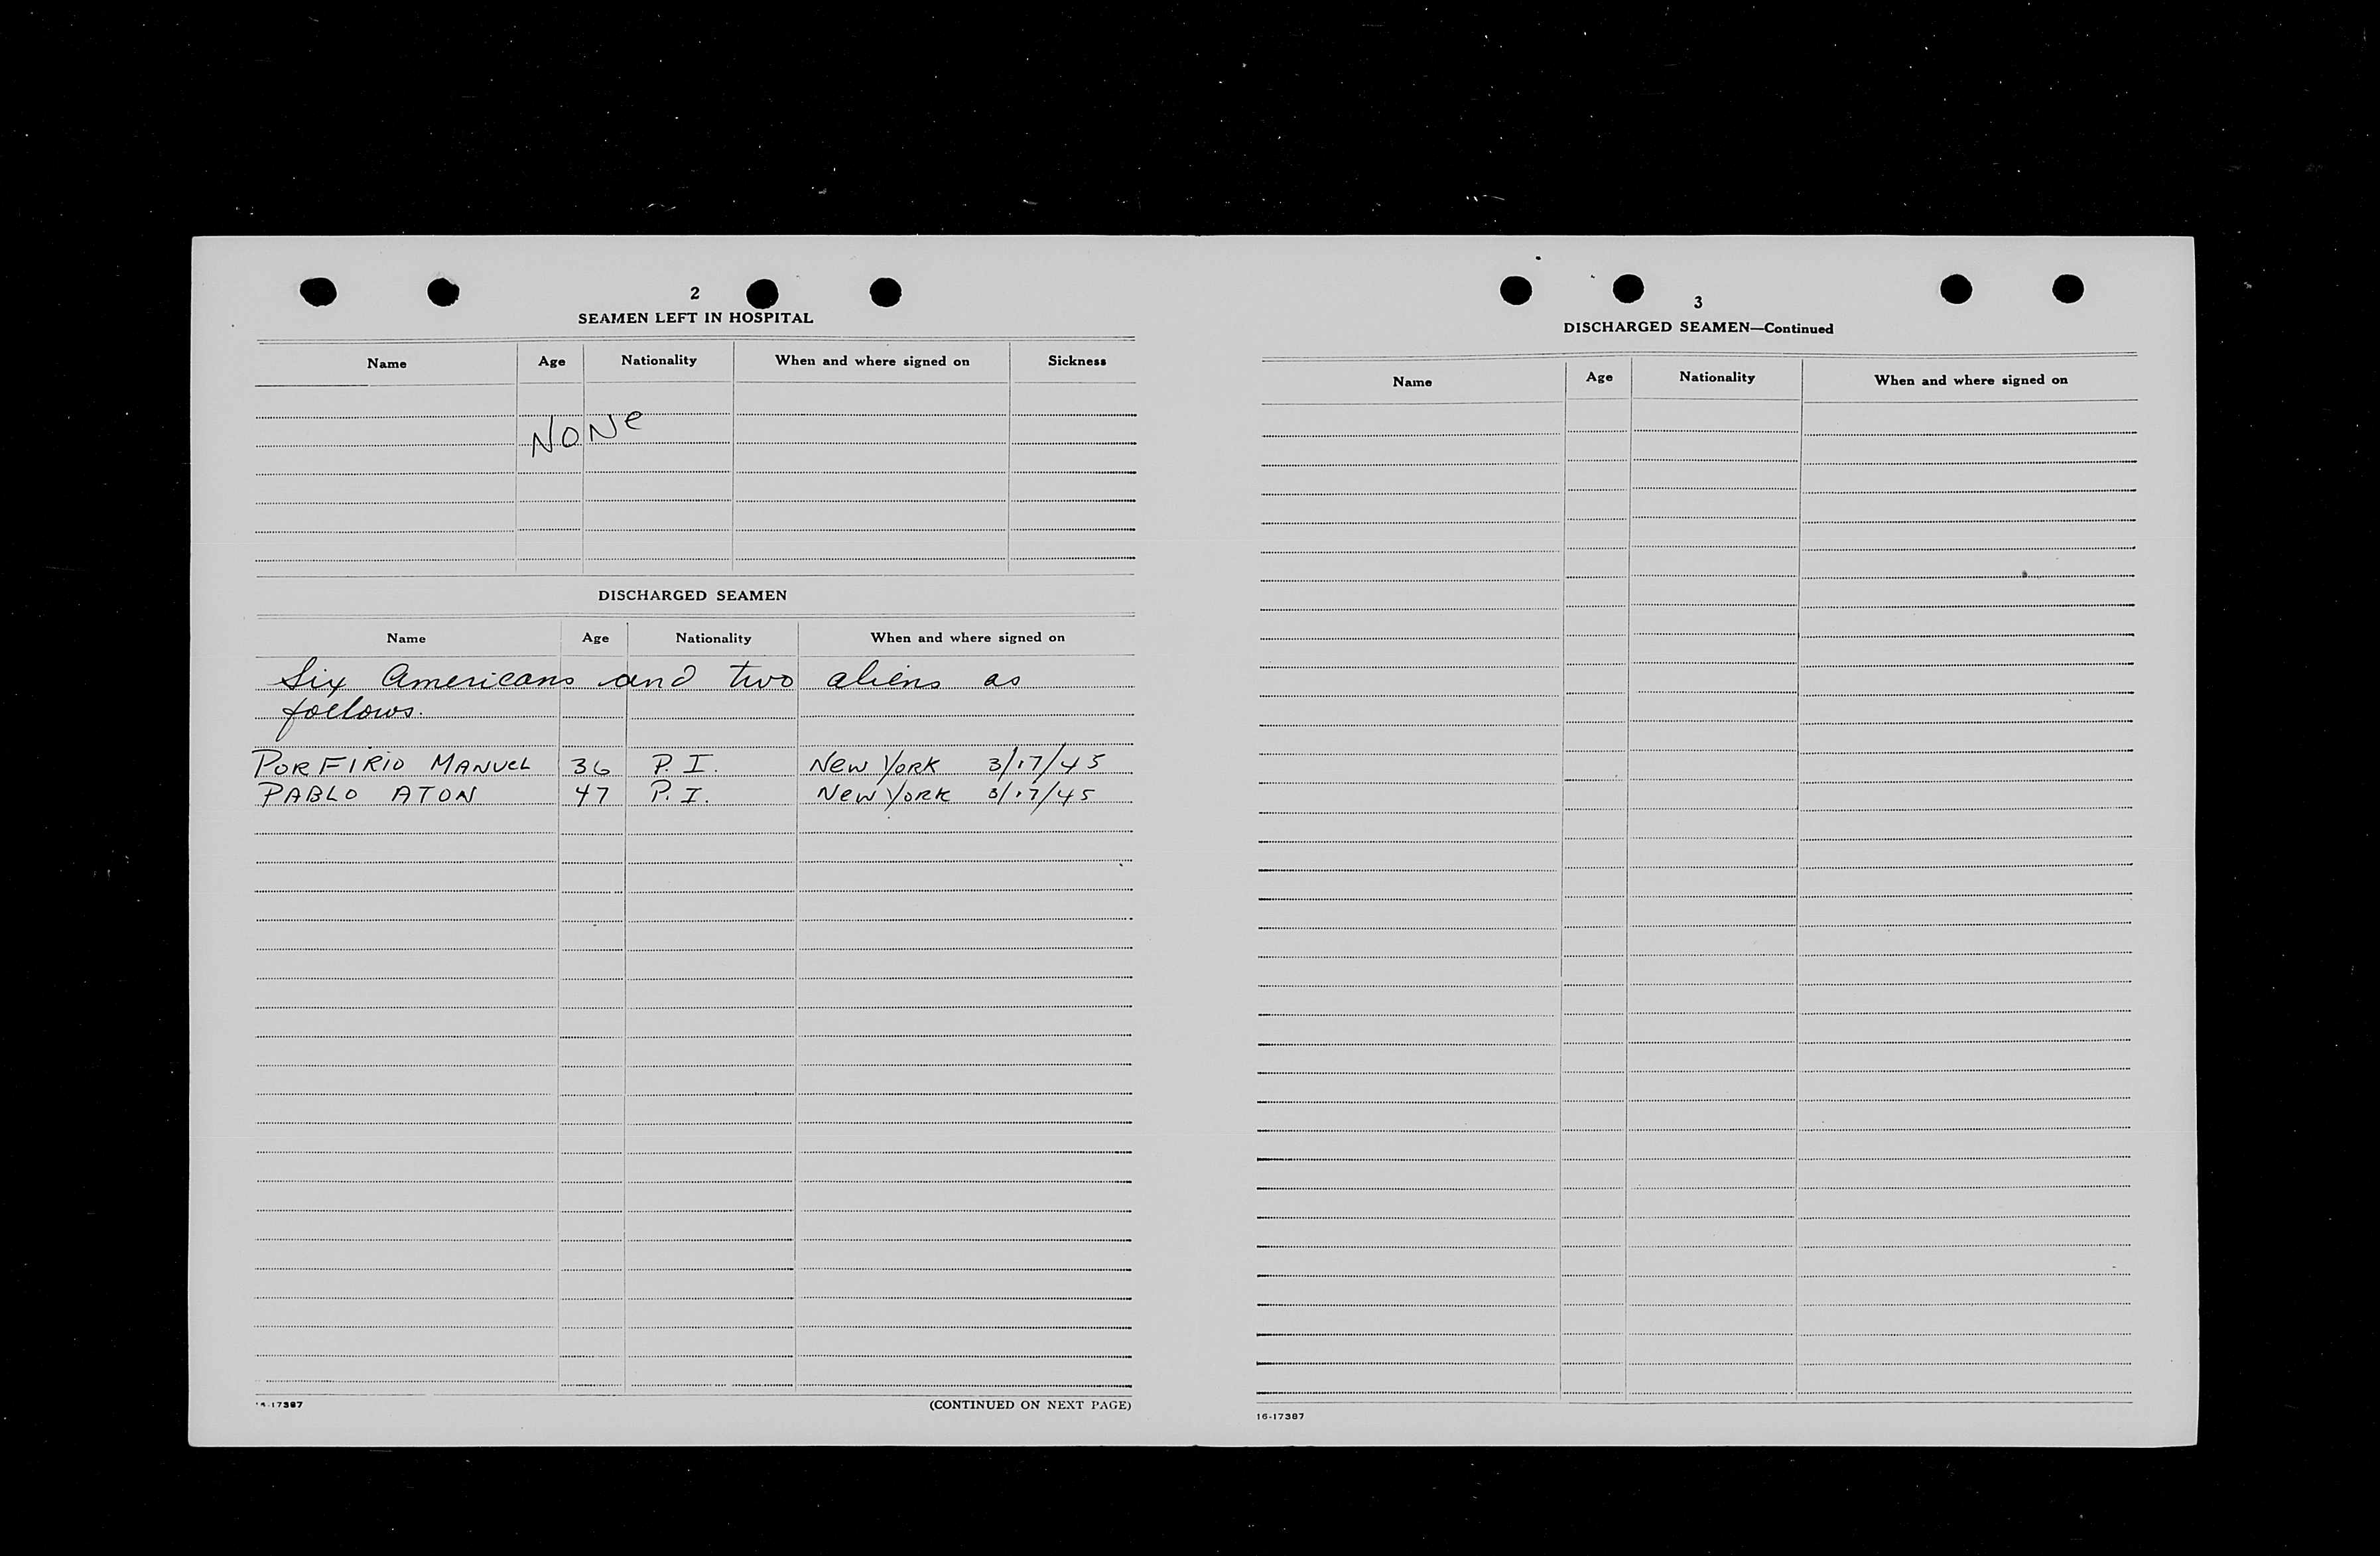 2
SEAMEN LEFT IN HOSPITAL
Name Age Nationality When and where signed on Sickness
NONe
DISCHARGED SEAMEN
Name Age Nationality When and where signed on
Six Americans and two aliens as
follows.
PORFIRIO MANUEL 36 P. I. New York 3/17/45
PABLO ATON 47 P. I. New York 3/17/45
16-17387
(CONTINUED ON NEXT PAGE)
3
DISCHARGED SEAMEN—Continued
Name Age Nationality When and where signed on
16-17387